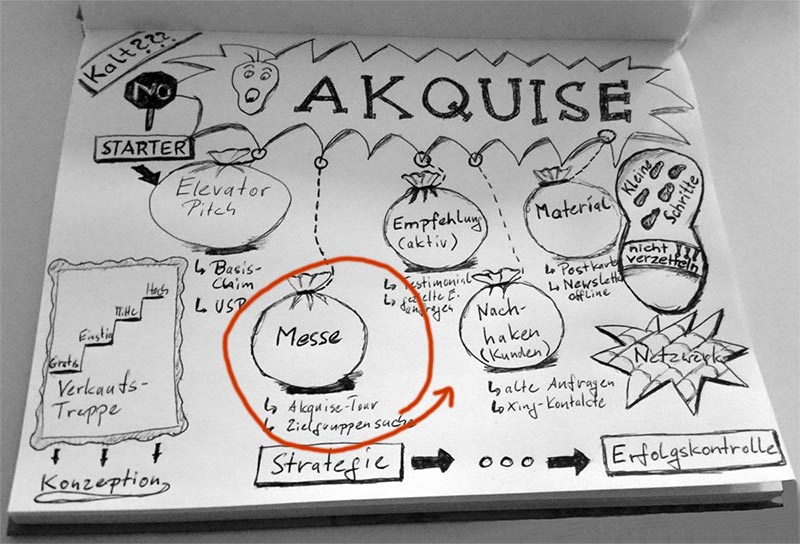 Kalt???
NO
AKQUISE
STARTER
Elevator
Pitch
↳ Basis-
Claim
↳ USP
Messe
↳ Akquise-Tour
↳ Zielgruppensuche
Empfehlung
(aktiv)
↳ Testimonial
↳ gezielte E.
anfragen
Nach-
haken
(Kunden)
↳ alte Anfragen
↳ Xing-Kontakte
Material
↳ Postkarte
↳ Newslett
offline
Kleine
Schritte
nicht !!!
verzetteln
Netzwerk
Hoch
Mitte
Einstieg
Gratis
Verkaufs-
Treppe
Konzeption
Strategie
Erfolgskontrolle